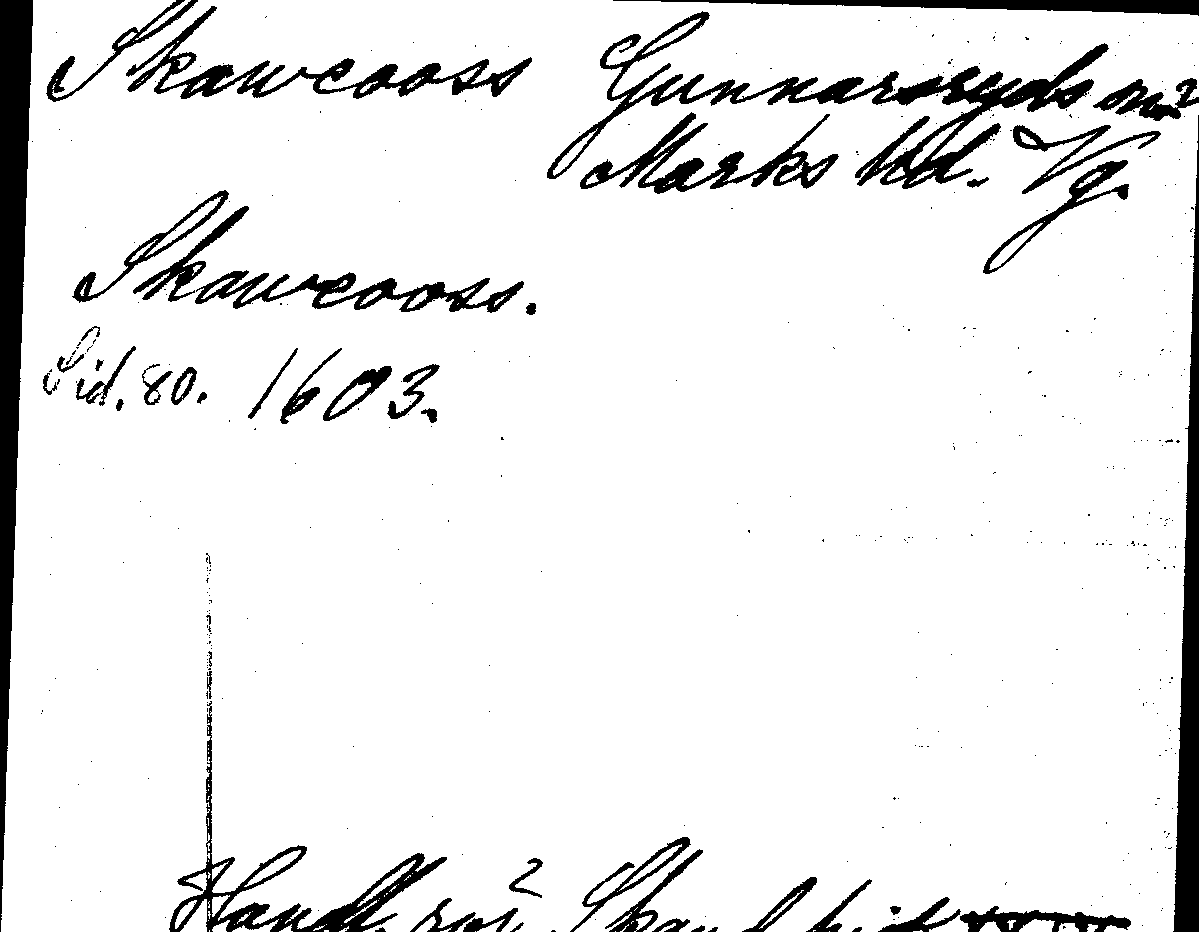 Skawcooss Gunnarsryds sn
Marks hd. Vg.
Skawcooss.
Sid. 80. 1603.
Handl. rör. Skand. hist.